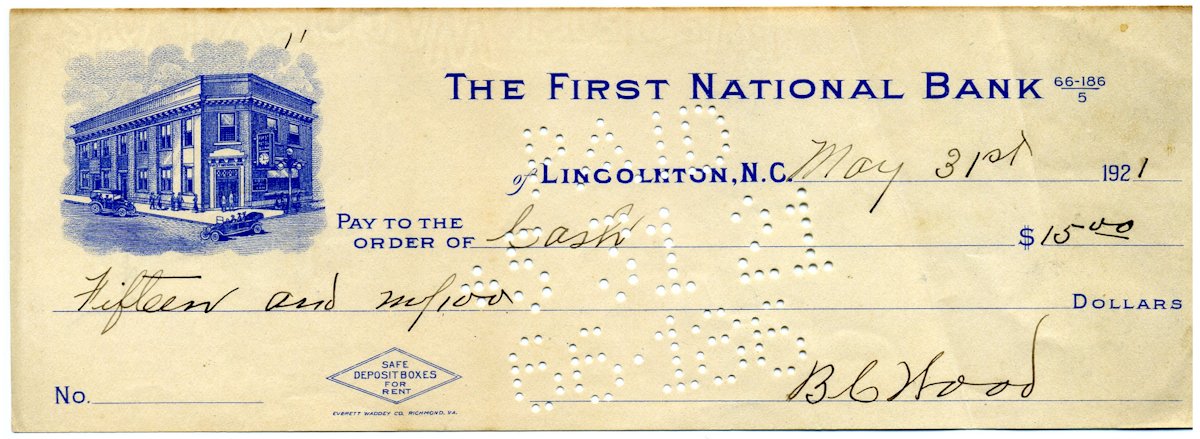 11
THE FIRST NATIONAL BANK 66-186/5
PAID
of LINCOLNTON, N.C. May 31st 1921
PAY TO THE
ORDER OF Cash $15.00
5 31 21
Fifteen and no/100 DOLLARS
66-186
SAFE
DEPOSIT BOXES
FOR
RENT
No. B C Wood
EVERETT WADDEY CO. RICHMOND, VA.